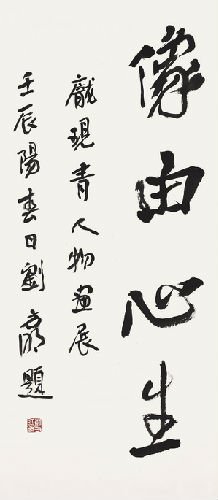 像由心生
龐現青人物畫展
壬辰陽春日劉文潮題